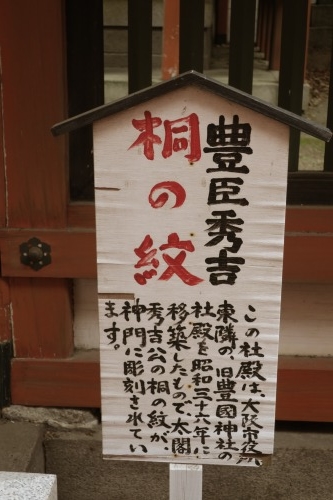 豊臣秀吉
桐の紋
この社殿は、大阪市役所
東隣の、旧豊國神社の
社殿を昭和三十六年に
移築したもので、太閤
秀吉公の桐の紋が、
神門に彫刻されてい
ます。